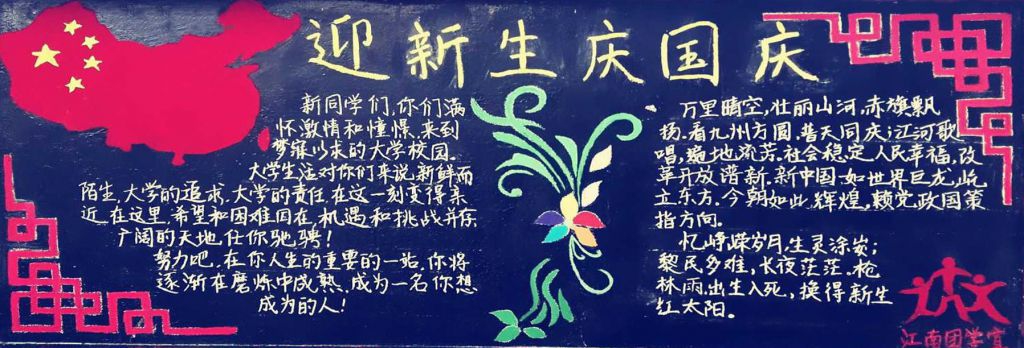 迎新生庆国庆
新同学们,你们满
怀激情和憧憬,来到
梦寐以求的大学校园。
大学生活对你们来说,新鲜而
陌生,大学的追求,大学的责任,在这一刻变得亲
近,在这里,希望和困难同在,机遇和挑战并存
广阔的天地任你驰骋!
努力吧,在你人生的重要的一站,你将
逐渐在磨炼中成熟,成为一名你想
成为的人!
万里晴空,壮丽山河,赤旗飘
扬,看九州方圆,普天同庆;江河歌
唱,遍地流芳。社会稳定,人民幸福,改
革开放谱新,新中国,如世界巨龙,屹
立东方,今朝如此,辉煌,赖党政国策
指方向。
忆峥嵘岁月,生灵涂炭;
黎民多难,长夜茫茫。枪
林雨,出生入死,换得新生
红太阳。
江南团学宣